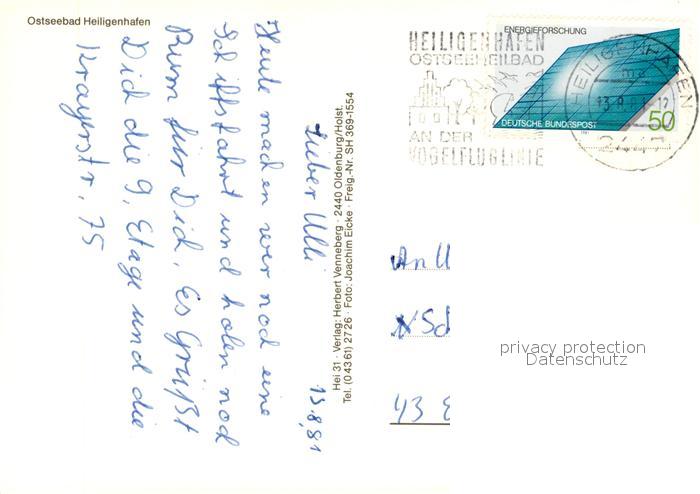 Ostseebad Heiligenhafen
Lieber Ulli 13.8.81
Heute machen wir noch eine
Schiffsfahrt und holen noch
Rum für Dich. Es Grüßt
Dich die 9. Etage und die
Krayerstr. 75
Hei 31 · Verlag: Herbert Venneberg · 2440 Oldenburg/Holst.
Tel. (0 43 61) 2726 · Foto: Joachim Eicke · Freig.-Nr. SH 369-1554
HEILIGENHAFEN
OSTSEEHEILBAD
AN DER
VOGELFLUGLINIE
ENERGIEFORSCHUNG
DEUTSCHE BUNDESPOST
50
HEILIGENHAFEN
13.8.81-12
An U
Sch
43 E
privacy protection
Datenschutz